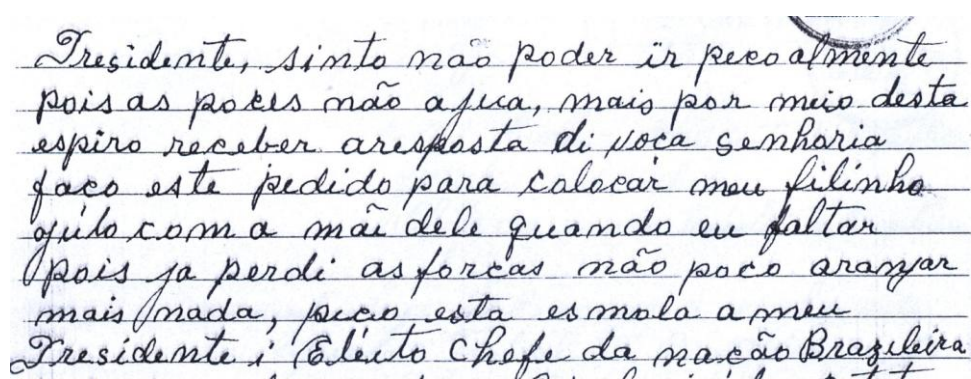 Presidente, sinto não poder ir pecoalmente
pois as poces não ajua, mais por meio desta
espiro receber aresposta di voça senhoria
faco este pedido para colocar meu filinho
com a mãi dele quando eu faltar
pois ja perdi as forcas não poco aranjar
mais nada, peco esta esmola a meu
Presidente i Eleito Chefe da nacão Brazileira